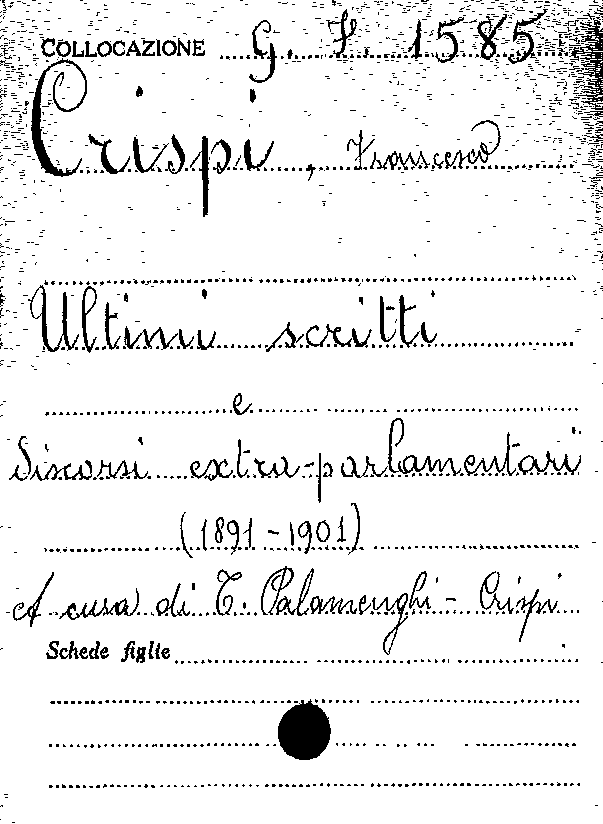 COLLOCAZIONE G. F. 1585
Crispi, Francesco
Ultimi scritti
e
discorsi extra-parlamentari
(1891-1901)
A cura di T. Palamenghi-Crispi
Schede figlie